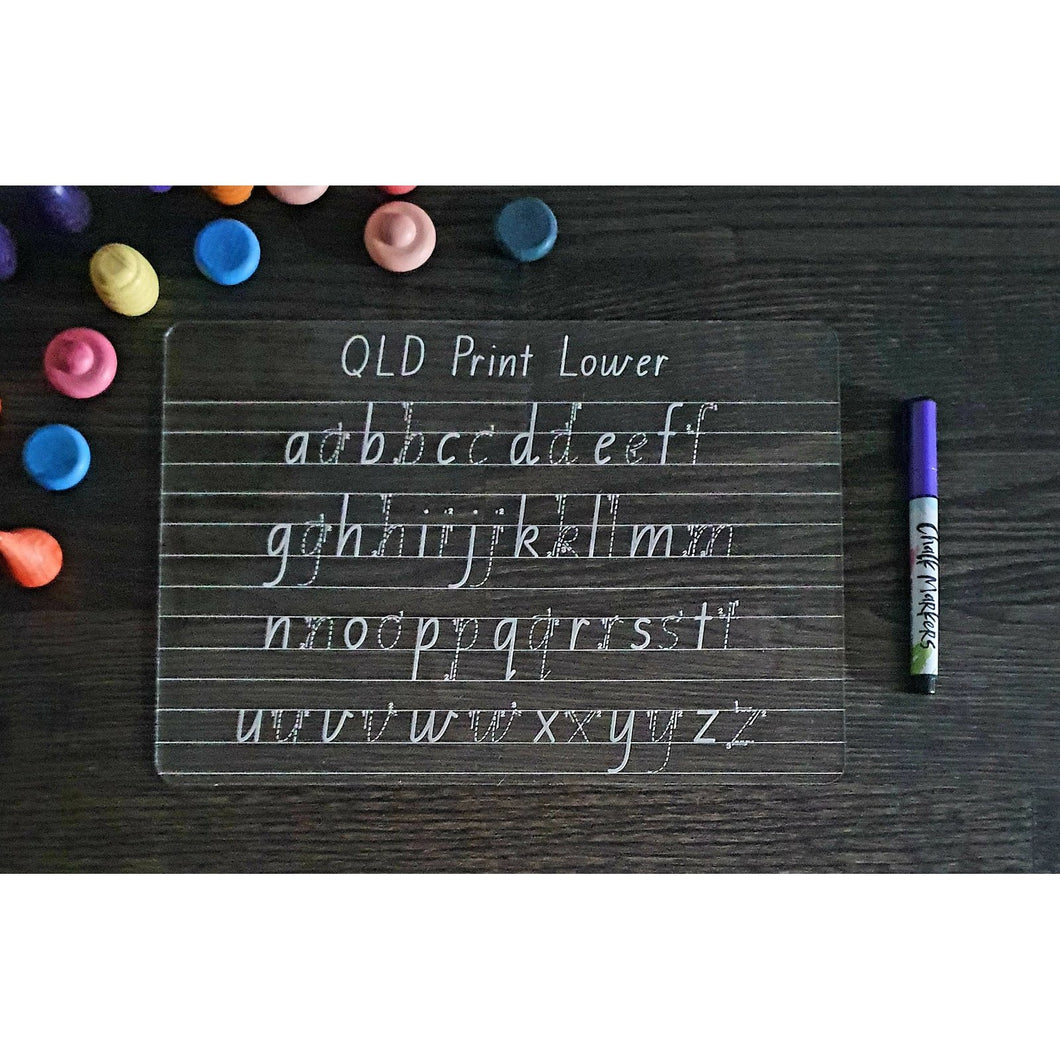 QLD Print Lower
aabbccddeeff
gghhiijjkkllmm
nnooppqqrrsstt
uuvvwwxxyyzz
Chalk Markers